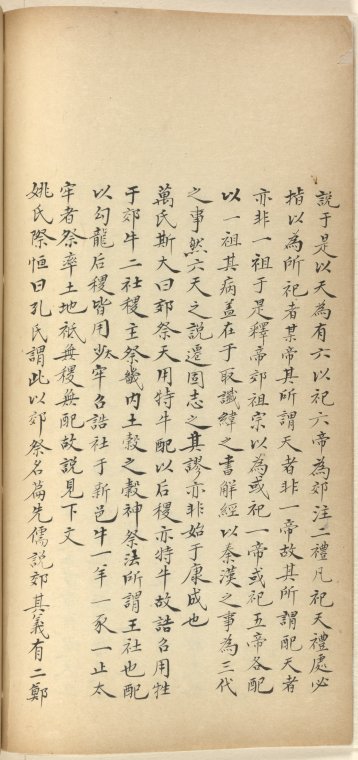 說于是以天為有六以祀六帝為郊注二禮凡祀天禮處必
指以為所祀者某帝其所謂天者非一帝故其所謂配天者
亦非一祖于是釋帝郊祖宗以為或祀一帝或祀五帝各配
以一祖其病蓋在于取讖緯之書解經以秦漢之事為三代
之事然六天之說遷固志之其謬亦非始于康成也
萬氏斯大曰郊祭天用特牛配以后稷亦特牛故誥召用牲
于郊牛二社稷主祭畿内土穀之穀神祭法所謂王社也配
以勾龍后稷皆用少牢召誥社于新邑牛一羊一豕一止太
牢者祭率土地祇無稷無配故說見下文
姚氏際恒曰孔氏謂此以郊祭名篇先儒說郊其義有二鄭